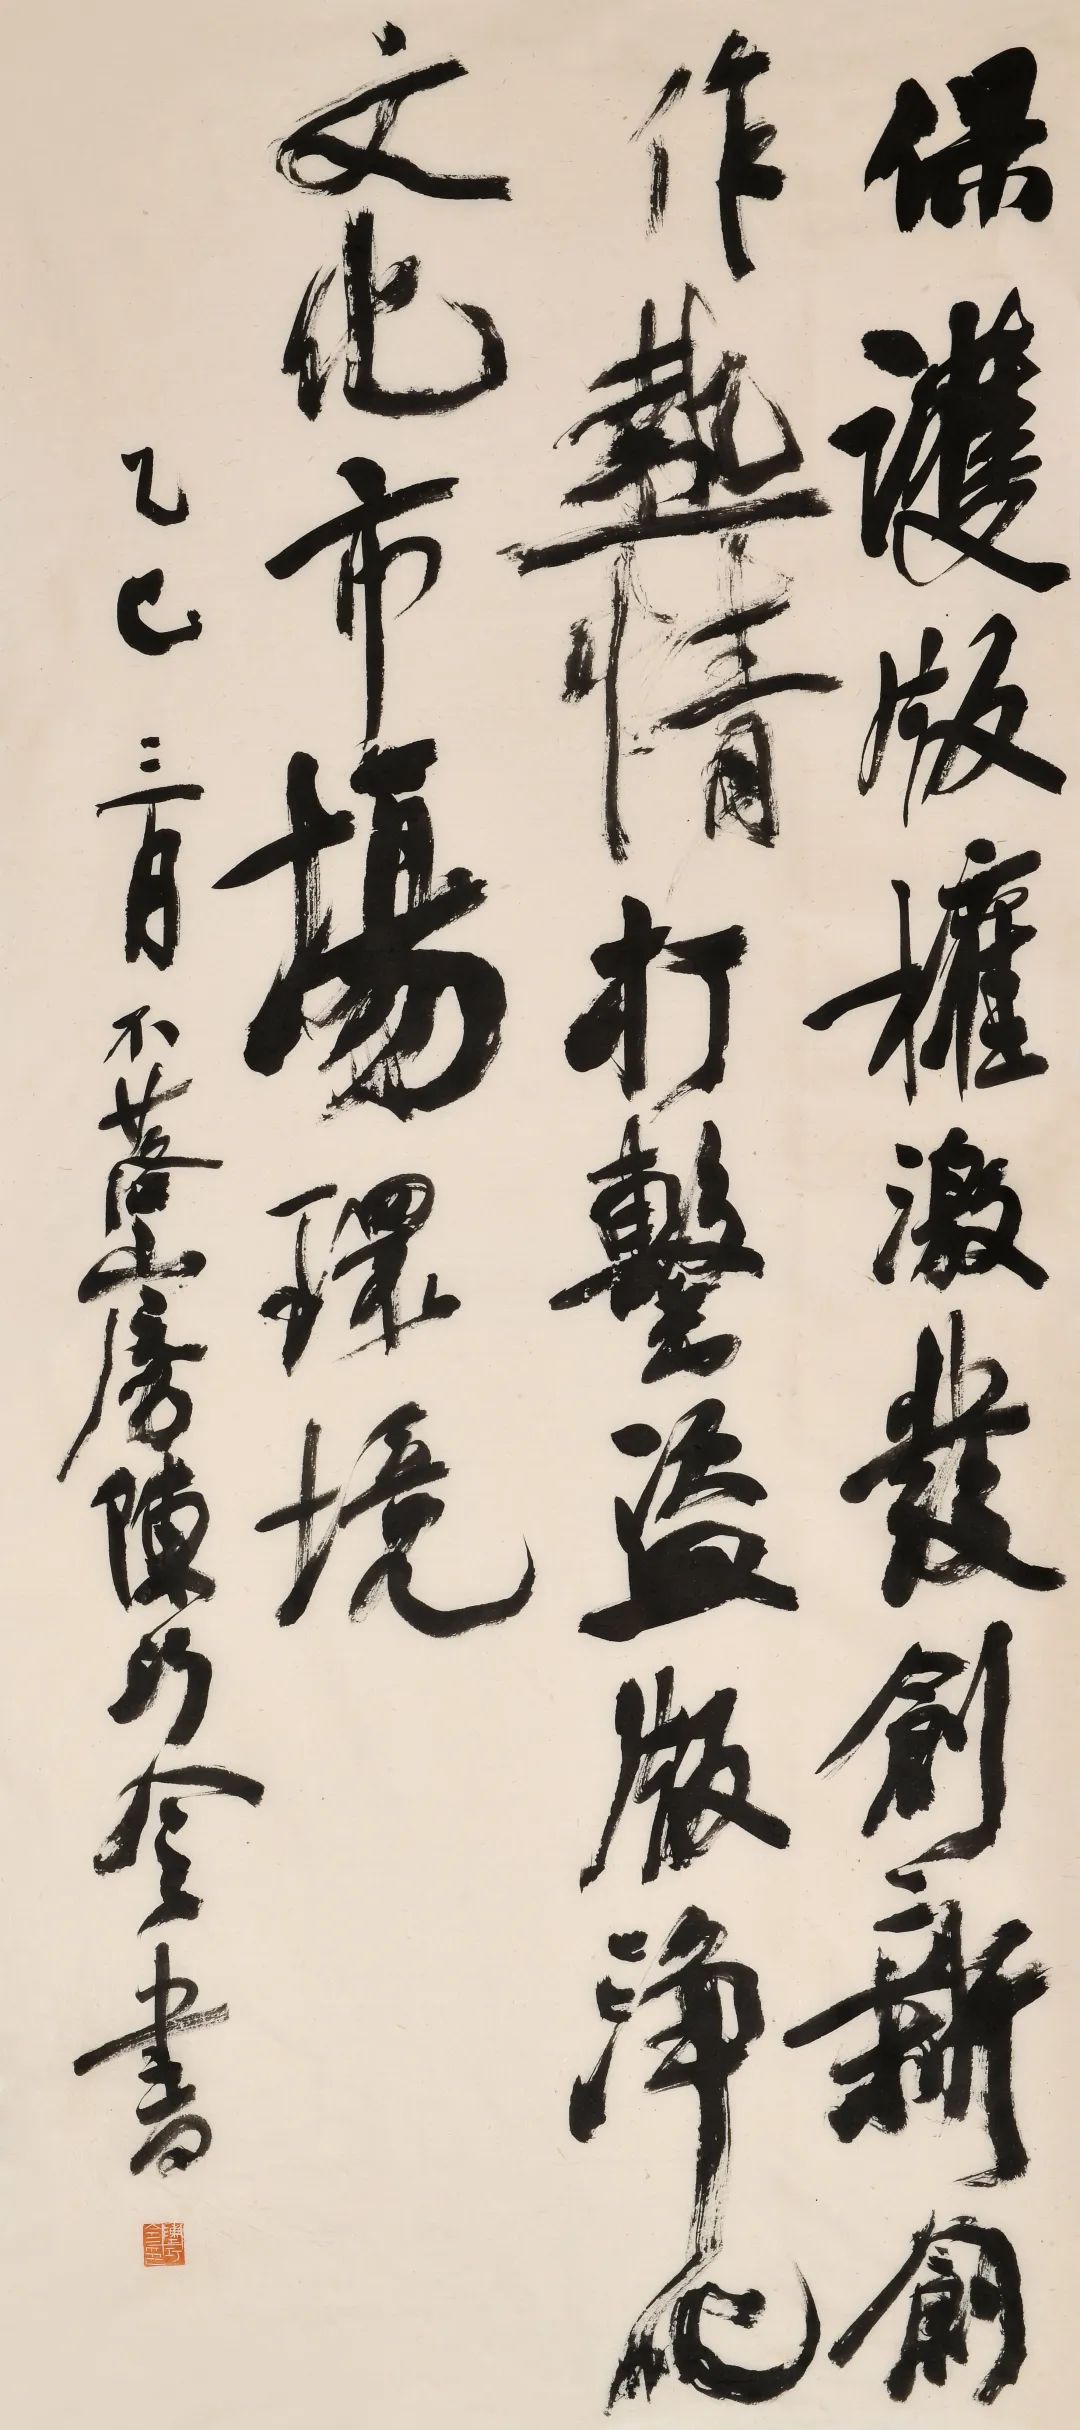 保護版權激發創新創
作熱情打擊盜版淨化
文化市場環境
乙巳三月不落山房陳巧令書